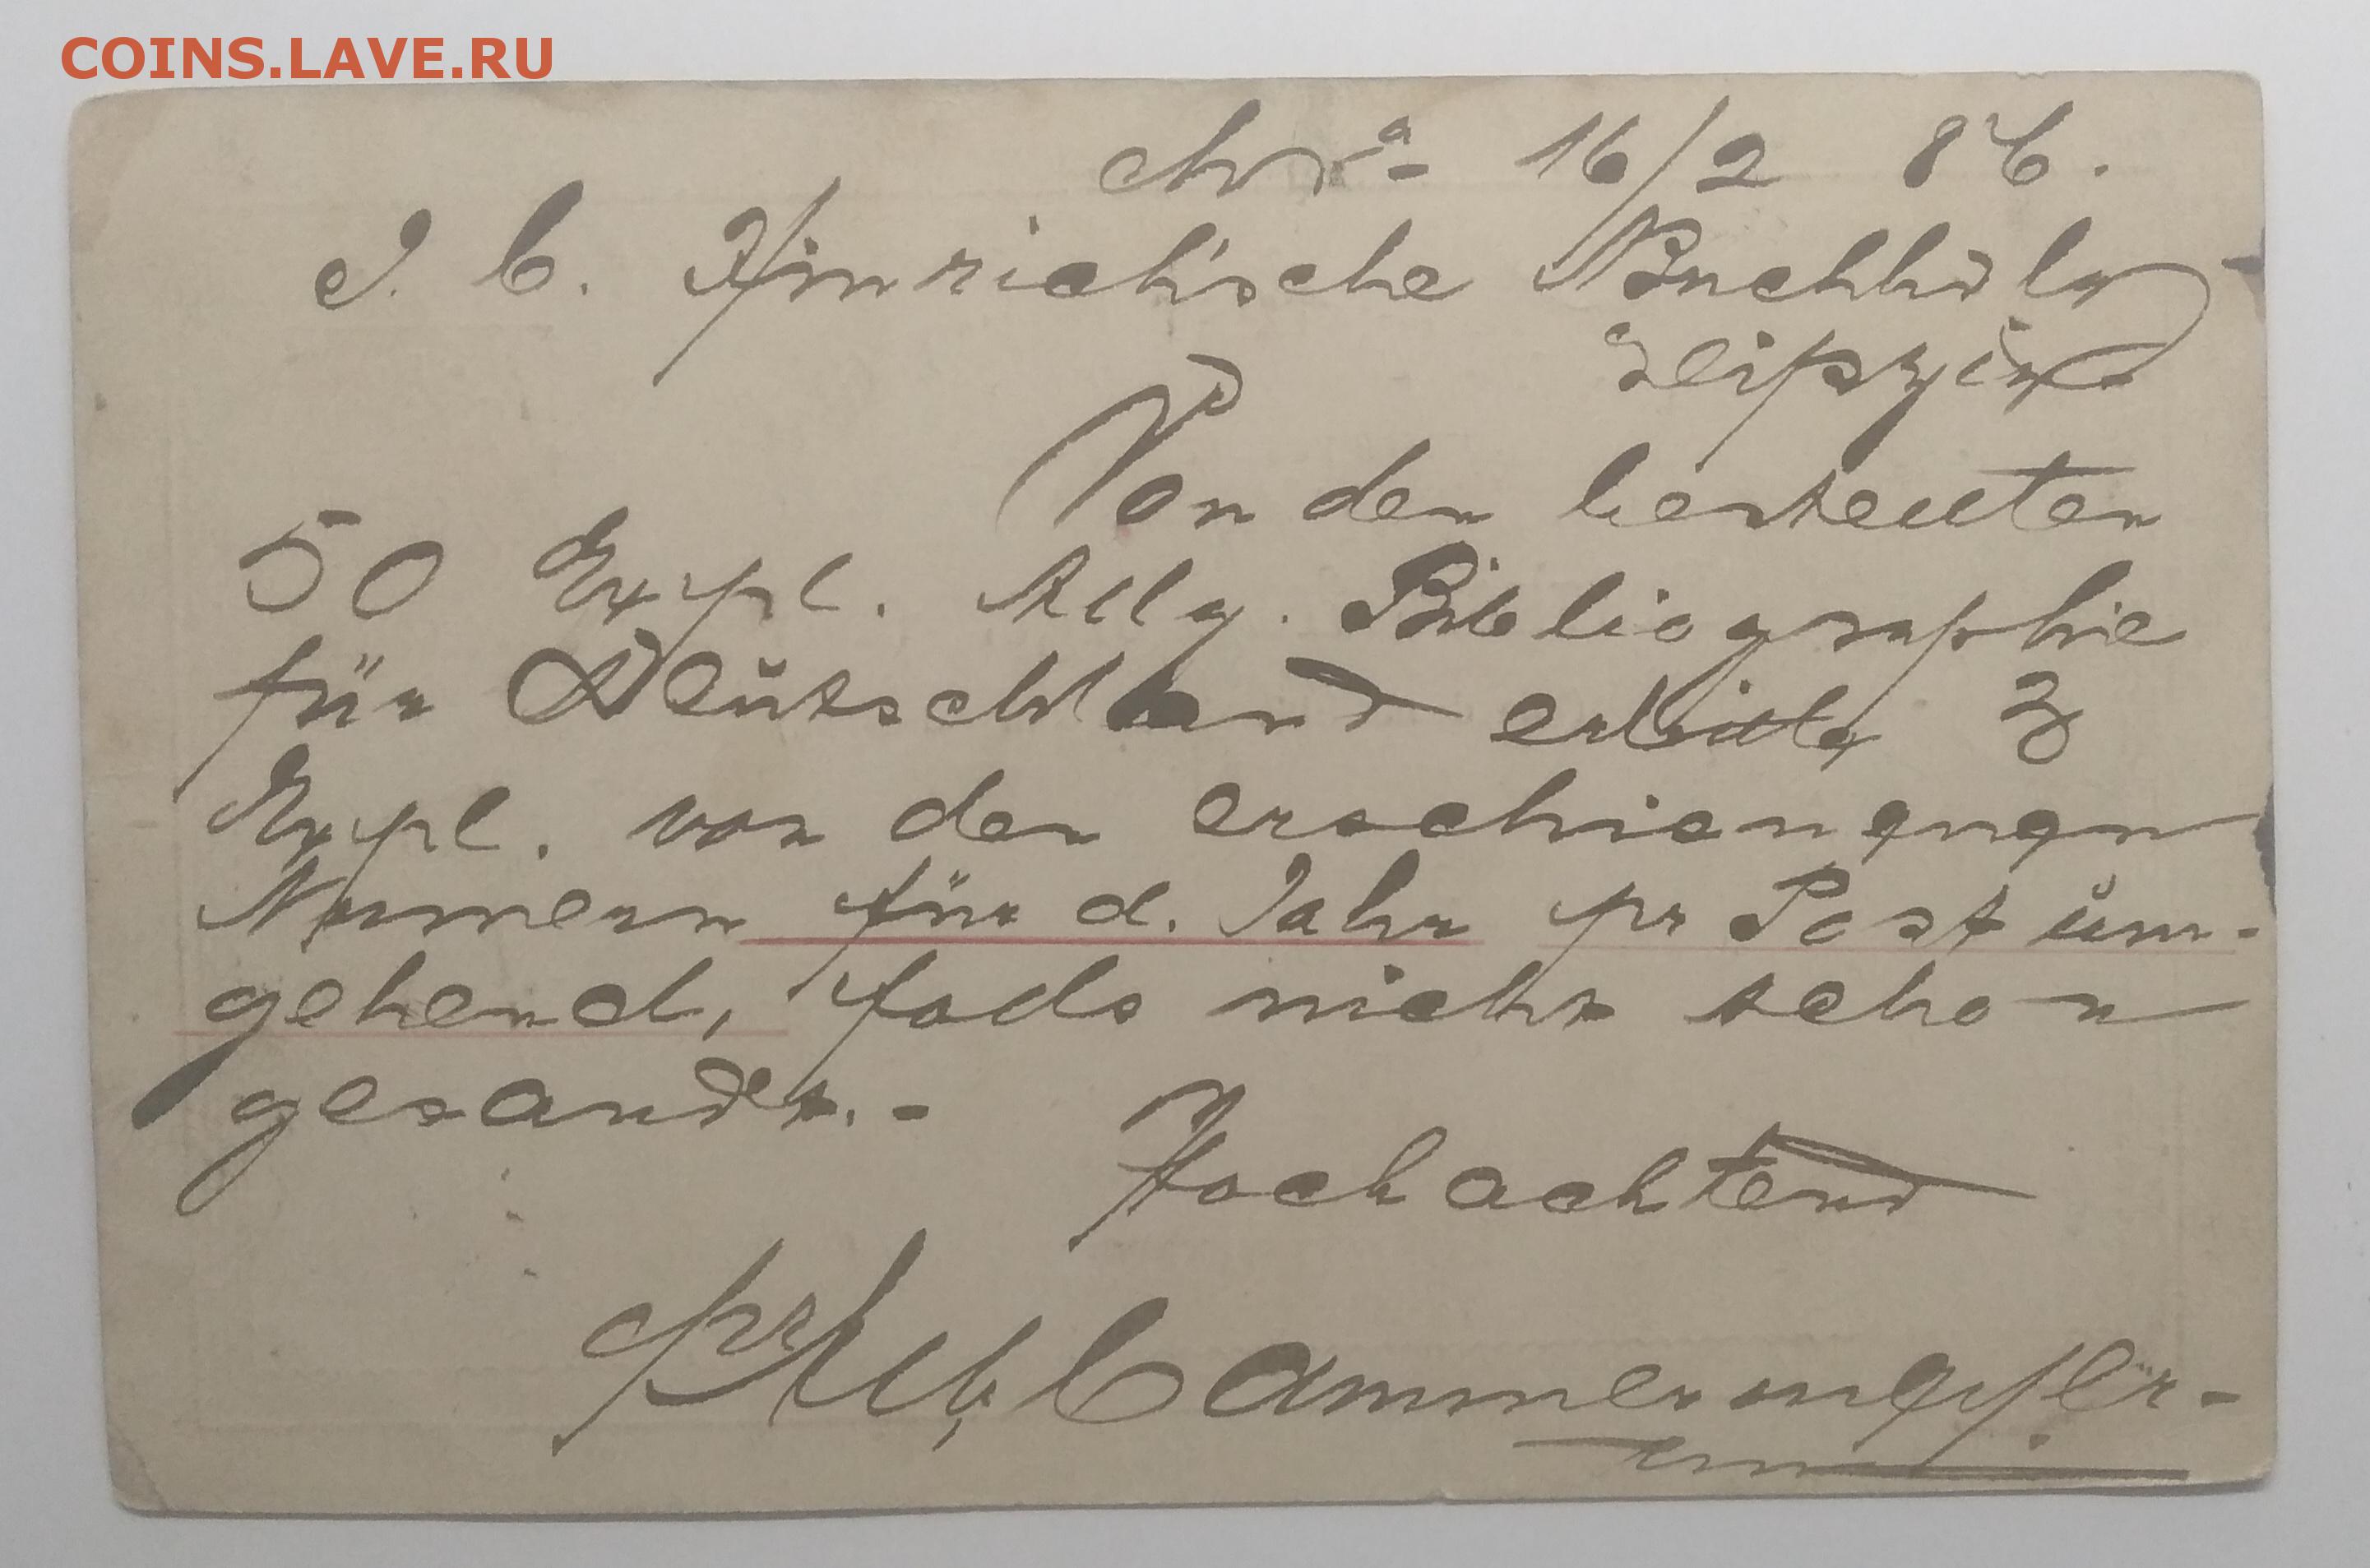 COINS.LAVE.RU
Chr.a 16/2 86.
J. C. Hinrich'sche Buchhdlg
Leipzig
Von den bestellten
50 Expl. Allg. Bibliographie
für Deutschland erbitte 3
Expl. von den erschienenen
Numern für d. Jahr pr Post um-
gehend, falls nicht schon
gesandt. -
Hochachtend
pr Alb. Cammermeyer -